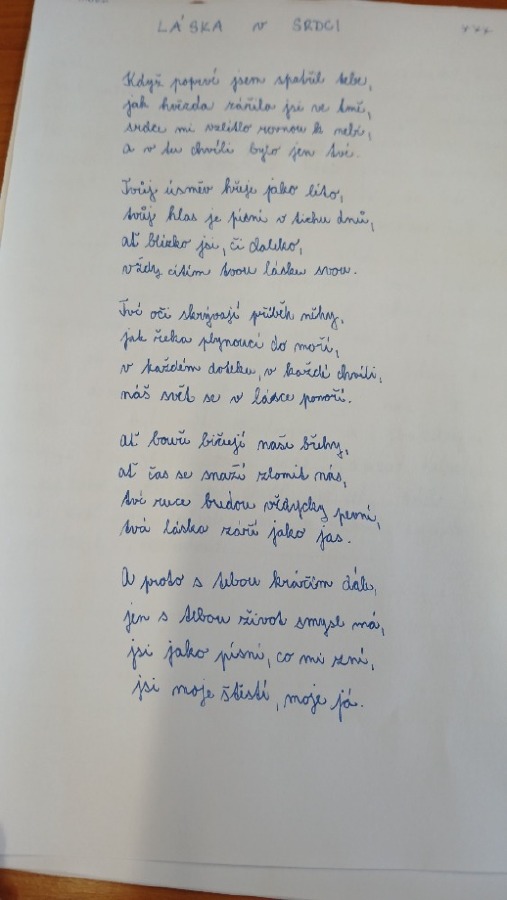 LÁSKA v SRDCI
Když poprvé jsem spatřil tebe,
jak hvězda zářila jsi ve tmě,
srdce mi vzlétlo rovnou k nebi,
a v tu chvíli bylo jen tvé.
Tvůj úsměv hřeje jako léto,
tvůj hlas je písní v tichu dnů,
ať blízko jsi, či daleko,
vždy cítím tvou lásku svou.
Tvé oči skrývají příběh něhy,
jak řeka plynoucí do moří,
v každém doteku, v každé chvíli,
náš svět se v lásce ponoří.
Ať bouře bičují naše břehy,
ať čas se snaží zlomit nás,
tvé ruce budou vždycky pevní,
tvá láska září jako jas.
A proto s tebou kráčím dále,
jen s tebou život smysl má,
jsi jako písní, co mi zní,
jsi moje štěstí, moje já.